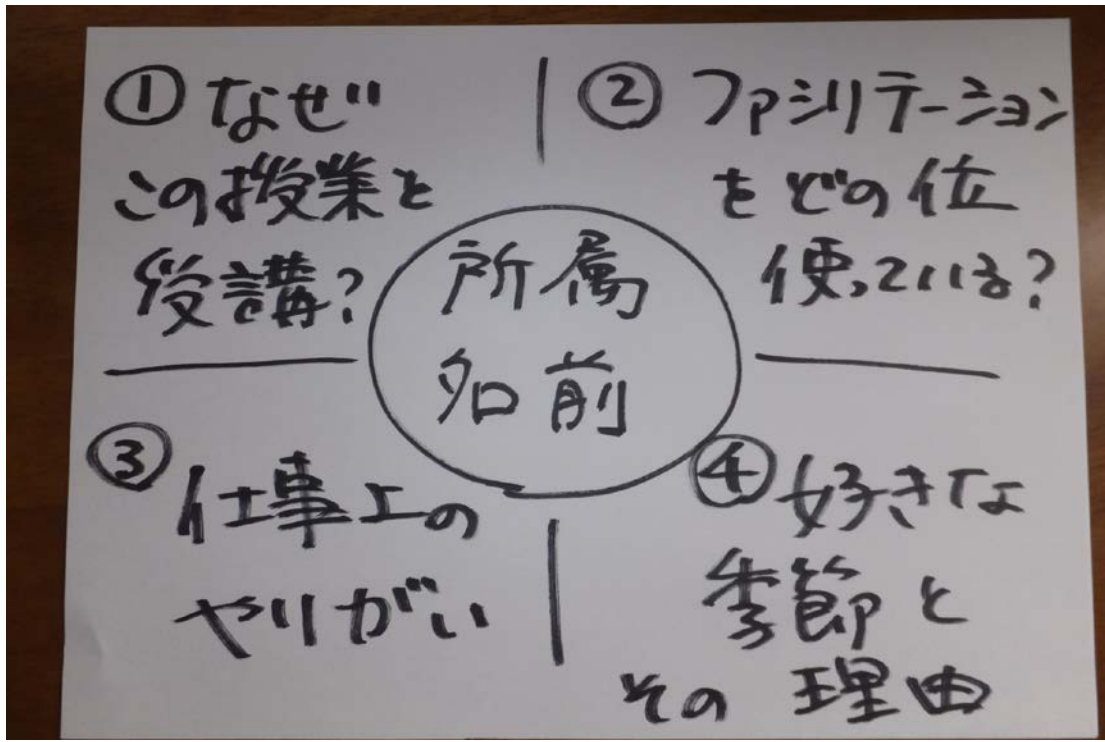 ① なぜ
この授業を
受講?
② ファシリテーション
をどの位
使っている?
所属
名前
③ 仕事上の
やりがい
④ 好きな
季節と
その理由